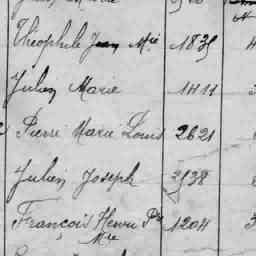 Théophile Jean Mie 1835
Julien Marie 1411
Pierre Marie Louis 2621
Julien Joseph 3138
François Henri Pre 1204
Mie